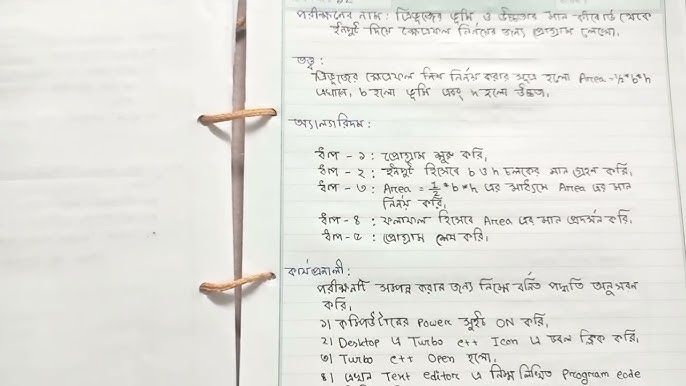 পরীক্ষনের নাম : ত্রিভুজের ভূমি ও উচ্চতার মান কীবোর্ড থেকে
ইনপুট দিয়ে ক্ষেত্রফল নির্নয়ের জন্য প্রোগ্রাম লেখো।
তত্ত্ব :
ত্রিভুজের ক্ষেত্রফল নির্নয় করার সূত্র হলো Area = ½*b*h
এখানে, b হলো ভূমি এবং h হলো উচ্চতা,
অ্যালগরিদম :
ধাপ - ১ : প্রোগ্রাম শুরু করি,
ধাপ - ২ : ইনপুট হিসেবে b ও h চলকের মান গ্রহণ করি,
ধাপ - ৩ : Area = 1/2 * b * h এর মাধ্যমে Area এর মান
নির্নয় করি,
ধাপ - ৪ : ফলাফল হিসেবে Area এর মান প্রদর্শন করি,
ধাপ - ৫ : প্রোগ্রাম শেষ করি,
কার্যপ্রনালী :
পরীক্ষনটি সম্পন্ন করার জন্য নিম্নে বর্নিত পদ্ধতি অনুসরন
করি,
১) কম্পিউটারের Power সুইচ ON করি,
২) Desktop এ Turbo c++ Icon এ ডবল ক্লিক করি,
৩) Turbo c++ Open হলো,
৪) এখন Text editor এ নিম্ন লিখিত Program code